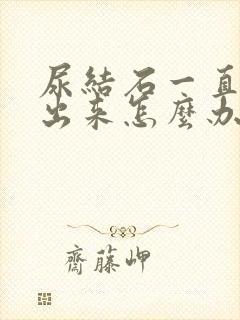 尿結石一直
出來怎麼办
齊藤岬